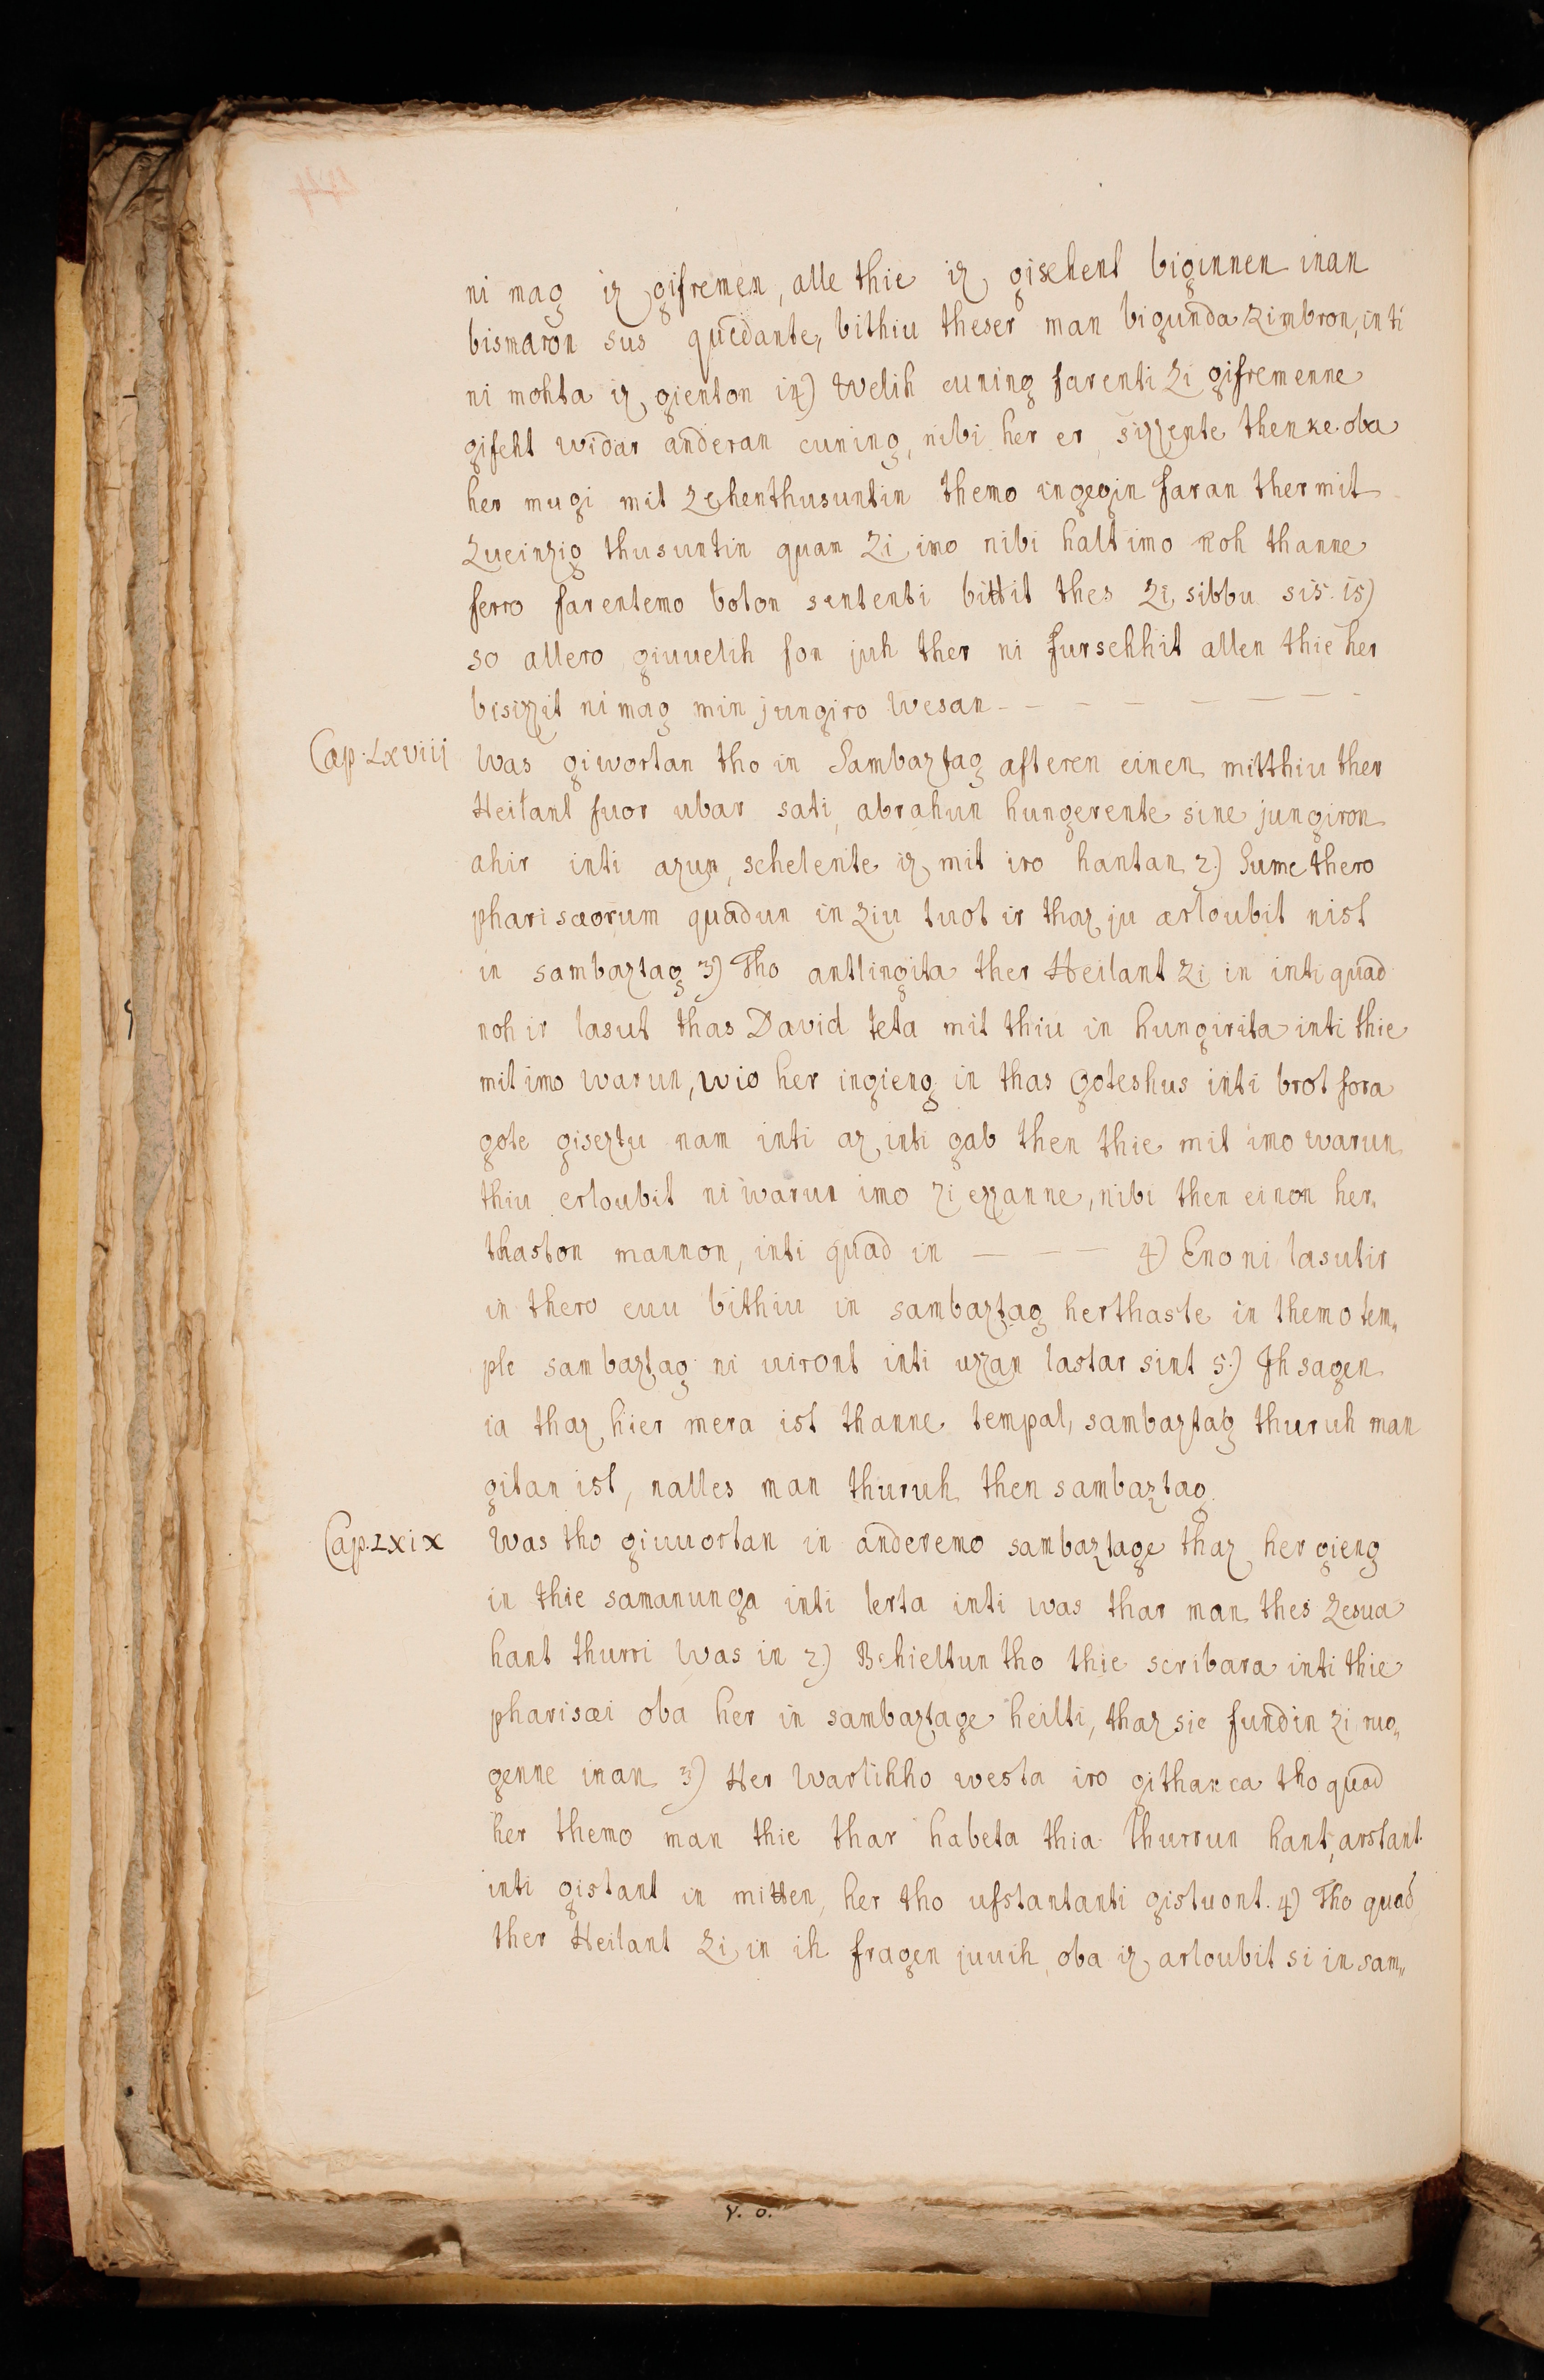 ni mag iz gifremen, alle thie iz gisehent biginnen inan
bismaron sus quedante, bithiu theser man bigunda zimbron, inti
ni mohta iz gienton 14) Welih cuning farenti zi gifremenne
gifeht widar anderan cuning, nibi her er, sizzente thenke oba
her mugi mit zehenthusuntin themo ingegin faran ther mit
zueinzig thusuntin quan zi imo nibi halt imo noh thanne
ferro farentemo boton sententi bittit thes zi sibbu sis. 15)
so allero giuuelih fon juh ther ni fursehhit allen thie her
bisizzit ni mag min jungiro wesan - - - - - - -
Cap. LXVIII Was giwortan tho in Sambaztag afteren einen mitthiu ther
Heilant fuor ubar sati, abrahun hungerente sine jungiron
ahir inti azun, schelente iz mit iro hantan 2.) Sume thero
pharisæorum quadun in ziu tuot ir thaz ju arloubit nist
in sambaztag 3) Tho antlingita ther Heilant zi in inti quad
noh ir lasut thas David teta mit thiu in hungirita inti thie
mit imo warun, wio her ingieng in thas Goteshus inti brot fora
gote giseztu nam inti az, inti gab then thie mit imo warun
thiu erloubit ni warun imo zi ezzanne, nibi then einon her„
thaston mannon, inti quad in — — — 4) Eno ni lasutir
in thero euu bithiu in sambaztag herthaste in themo tem„
ple sambaztag ni uiront inti uzzan lastar sint 5.) Ih sagen
ia thaz hier mera ist thanne tempal, sambaztag thuruh man
gitan ist, nalles man thuruh then sambaztag.
Cap. LXIX Was tho giuuortan in anderemo sambaztage thaz her gieng
in thie samanunga inti lerta inti was thar man thes zesua
hant thurri was in 2.) Behieltun tho thie scribara inti thie
pharisæi oba her in sambaztage heilti, thaz sie fundin zi ruo„
genne inan 3) Her warlihho westa iro githanca tho quad
her themo man thie thar habeta thia thurrun hant, arstant
inti gistant in mitten, her tho ufstantanti gistuont. 4) Tho quad
ther Heilant zi in ih fragen juuih, oba iz arloubit si in sam„
v. o.